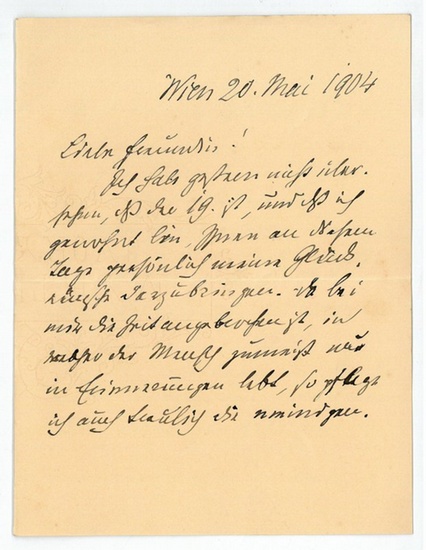 Wien 20. Mai 1904
Liebe Freundin!
Ich habe gestern nicht über-
sehen, daß der 19. ist, und daß ich
gewohnt bin, Ihnen an diesem
Tage persönlich meine Glück-
wünsche darzubringen. Da bei
mir die Zeit angebrochen ist, in
welcher der Mensch zumeist nur
in Erinnerungen lebt, so pflege
ich auch treulich die meinigen.